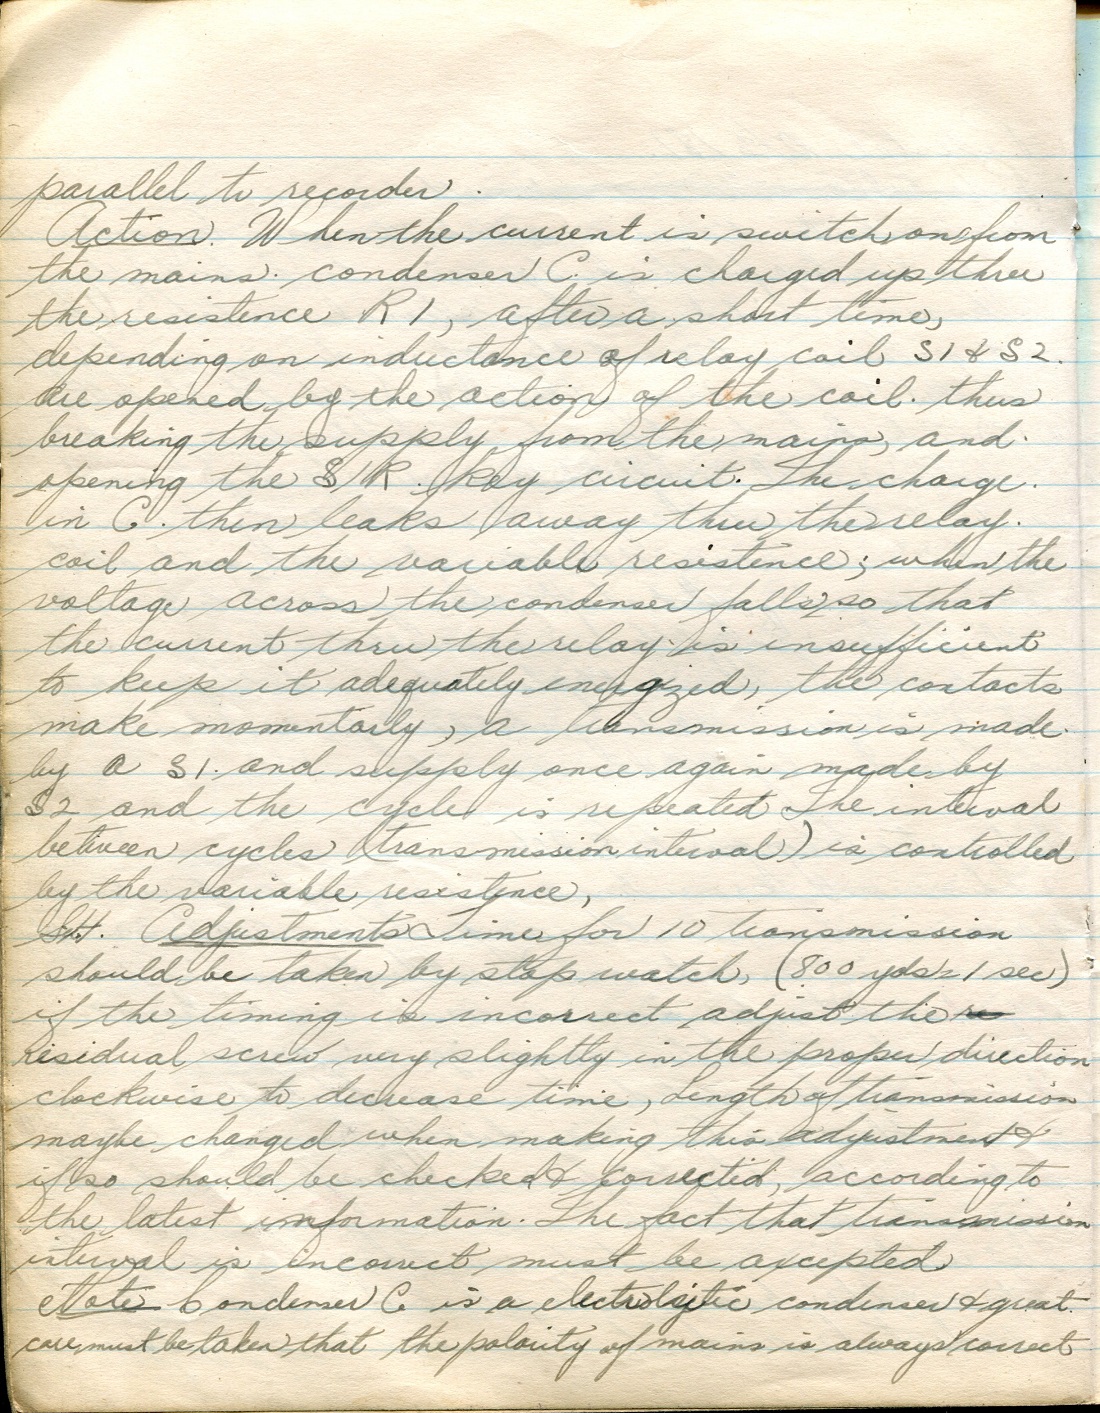 parallel to recorder.
Action. When the current is switch on from
the mains. condenser C. is charged up thru
the resistence R1, after a short time,
depending on inductance of relay coil S1 & S2.
are opened by the action of the coil. thus
breaking the supply from the mains, and.
opening the S/R. key circuit. The charge.
in C. then leaks away thru the relay.
coil and the variable resistence; when the
voltage across the condenser falls so that
the current thru the relay is insufficient
to keep it adequately energized, the contacts
make momentarly, a transmission is made.
by a S1. and supply once again made by
S2 and the cycle is repeated The interval
between cycles (transmission interval) is controlled
by the variable resistence,
Adjustments Time for 10 transmission
should be taken by stop watch, (800 yds = 1 sec)
if the timing is incorrect adjust the re
residual screw very slightly in the proper direction
clockwise to decrease time, Length of transmission
maybe changed when making this adjustment &
if so should be checked & corrected, according to
the latest imformation. The fact that transmission
interval is incorrect must be axcepted
Note Condenser C. is a electrolytic condenser & great.
care must be taken that the polarity of mains is always correct